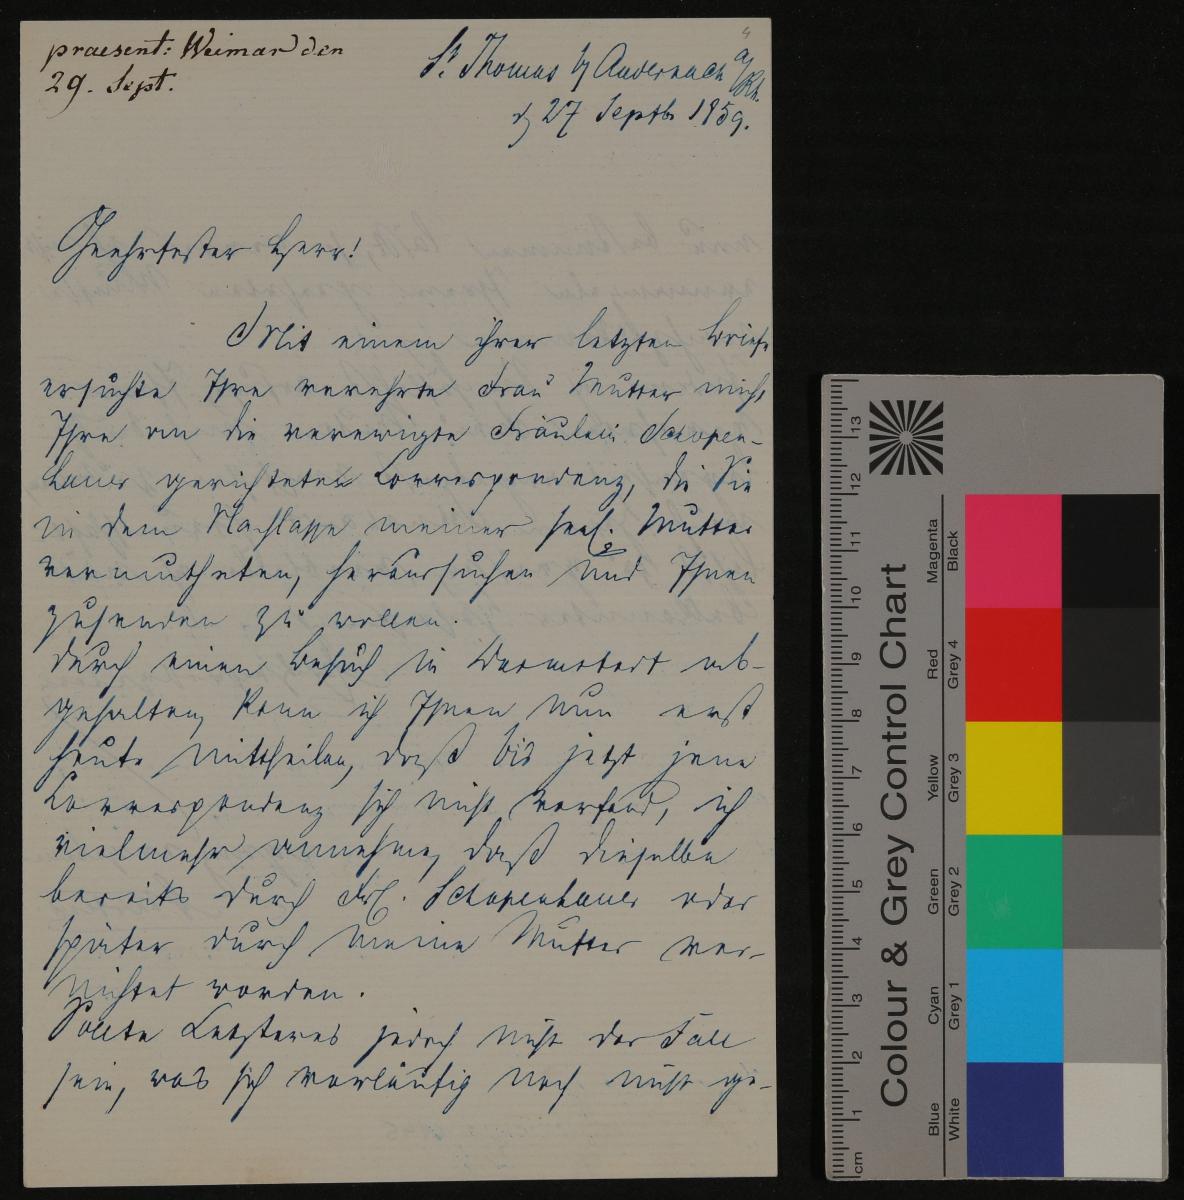 praesent: Weimar den
29. Sept.
4
St. Thomas b/ Andernach a/Rh.
d/ 27 Septb 1859.
Geehrtester Herr!
Mit einem ihrer letzten Briefe
ersuchte Ihre verehrte Frau Mutter mich
Ihre an die verewigte Fräulein Schopen-
hauer gerichteten Correspondenz, die Sie
in dem Nachlasse meiner seel. Mutter
vermutheten, heraussuchen und Ihnen
zusenden zu wollen.
Durch einen Besuch in Darmstadt ab-
gehalten, kann ich Ihnen nun erst
heute mittheilen, daß bis jetzt jene
Correspondenz sich nicht vorfand, ich
vielmehr annehme, daß dieselbe
bereits durch Frl. Schopenhauer oder
später durch meine Mutter ver-
nichtet worden.
Sollte Letzteres jedoch nicht der Fall
sein, was sich vorläufig noch nicht ge-
Colour & Grey Control Chart
Blue Cyan Green Yellow Red Magenta
White Grey 1 Grey 2 Grey 3 Grey 4 Black
cm 1 2 3 4 5 6 7 8 9 10 11 12 13